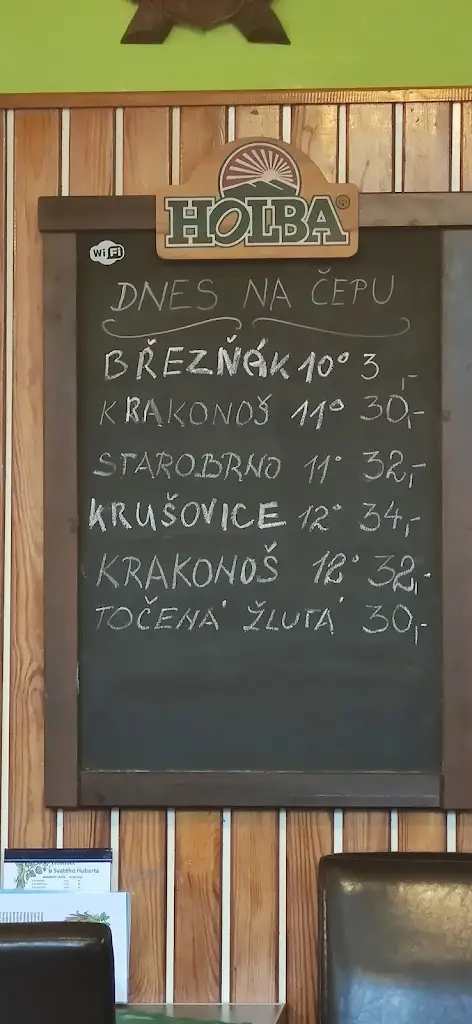 HOLBA®
WiFi
DNES NA ČEPU
BŘEZŇÁK 10° 3 ,-
KRAKONOŠ 11° 30,-
STAROBRNO 11° 32,-
KRUŠOVICE 12° 34,-
KRAKONOŠ 12° 32,-
TOČENÁ ŽLUTÁ 30,-
u Svatého Huberta